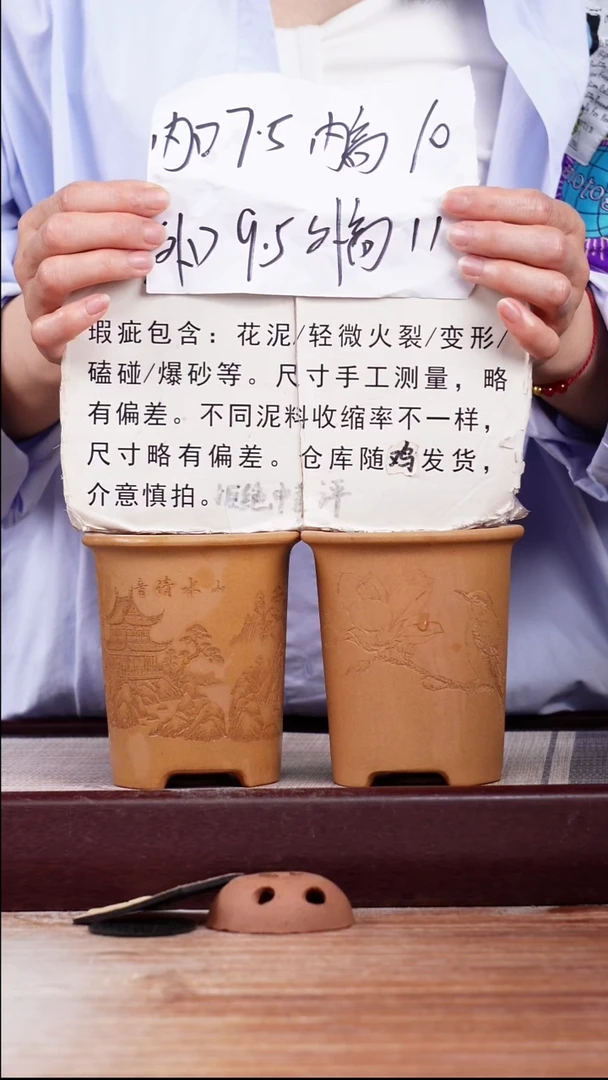 内口7.5 内高10
外口9.5 外高11
瑕疵包含：花泥/轻微火裂/变形/
磕碰/爆砂等。尺寸手工测量，略
有偏差。不同泥料收缩率不一样，
尺寸略有偏差。仓库随鸡发货，
介意慎拍。拒绝中
音清水山